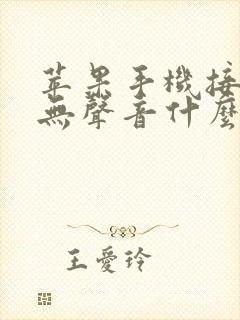 苹果手機接
無聲音什麼
王愛玲